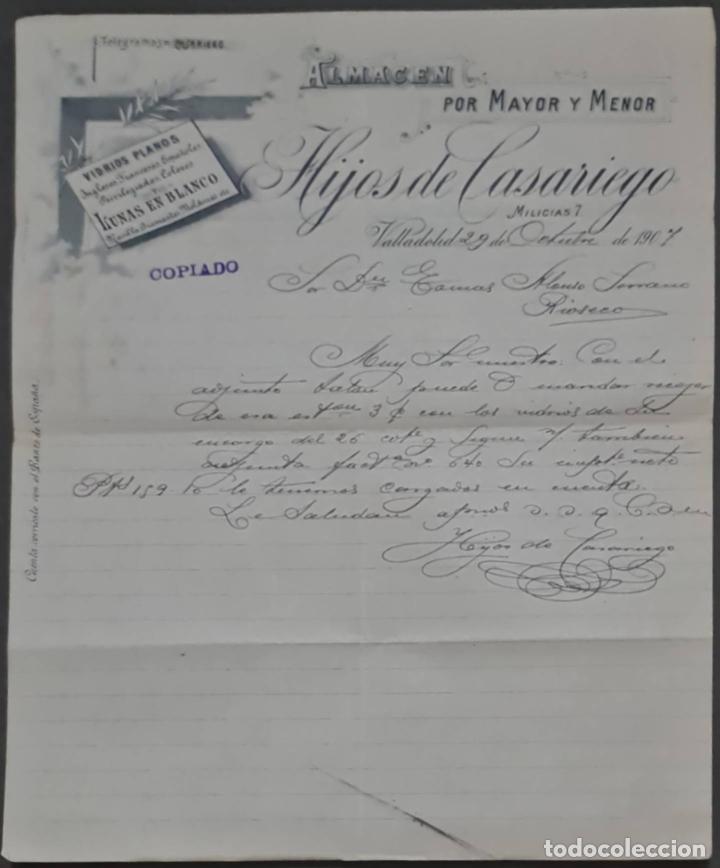 Telegramas=
ALMACEN
POR MAYOR Y MENOR
VIDRIOS PLANOS
Ingleses, Franceses, Españoles
Colores
LUNAS EN BLANCO
Hijos de Casariego
MILICIAS 7
Valladolid 29 de Octubre de 1907
COPIADO
Sor Dn Tomas Alonso Serrano
Rioseco
Muy Sor nuestro: Con el
adjunto talon puede V mandar recojer
de esa eston 3 c/ con los vidrios de su
encargo del 26 cote y sigue y tambien
adjunta facta no 640 Su impte neto
Pts 159 le tenemos cargadas en cuenta.
Le Saludan afmos s. s. q.
Hijos de Casariego
Cuenta corriente con el Banco de España.
todocoleccion
todocoleccion.net